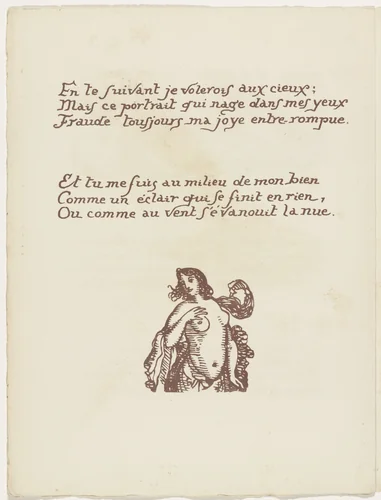 En te suivant je volerois aux cieux;
Mais ce portrait qui nage dans mes yeux
Fraude tousjours ma joye entrerompue.
Et tu me fuis au milieu de mon bien
Comme un éclair qui se finit en rien,
Ou comme au vent s'évanouit la nue.